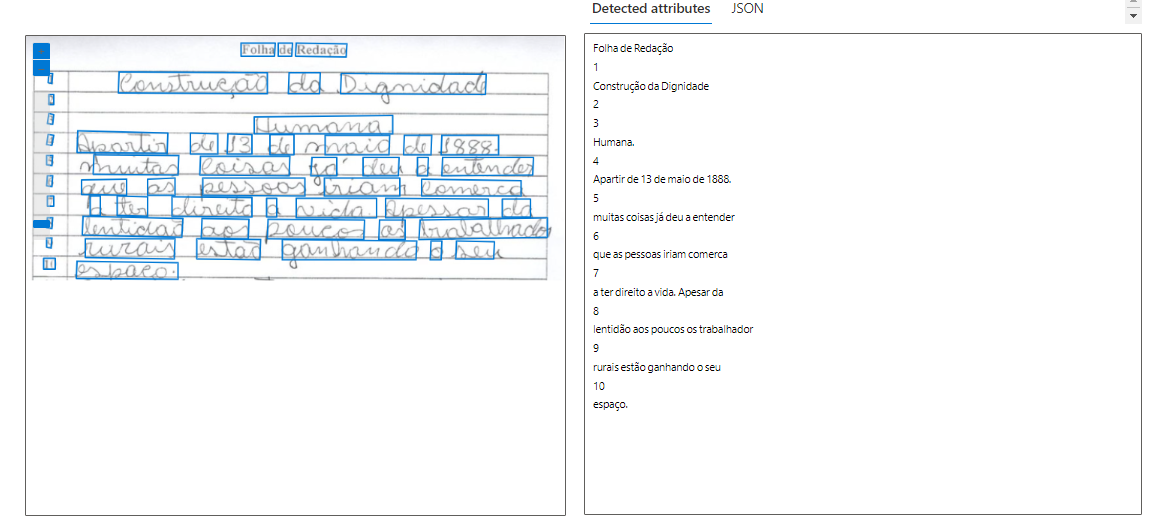 Detected attributes JSON
Folha de Redação
1 Construção da Dignidade
2
3 Humana.
4 Apartir de 13 de maio de 1888.
5 muitas coisas já deu a entender
6 que as pessoas iriam comerca
7 a ter direito a vida. Apessar da
8 lentidão aos poucos os trabalhador
9 rurais estão ganhando o seu
10 espaço.
Folha de Redação
1
Construção da Dignidade
2
3
Humana.
4
Apartir de 13 de maio de 1888.
5
muitas coisas já deu a entender
6
que as pessoas iriam comerca
7
a ter direito a vida. Apesar da
8
lentidão aos poucos os trabalhador
9
rurais estão ganhando o seu
10
espaço.